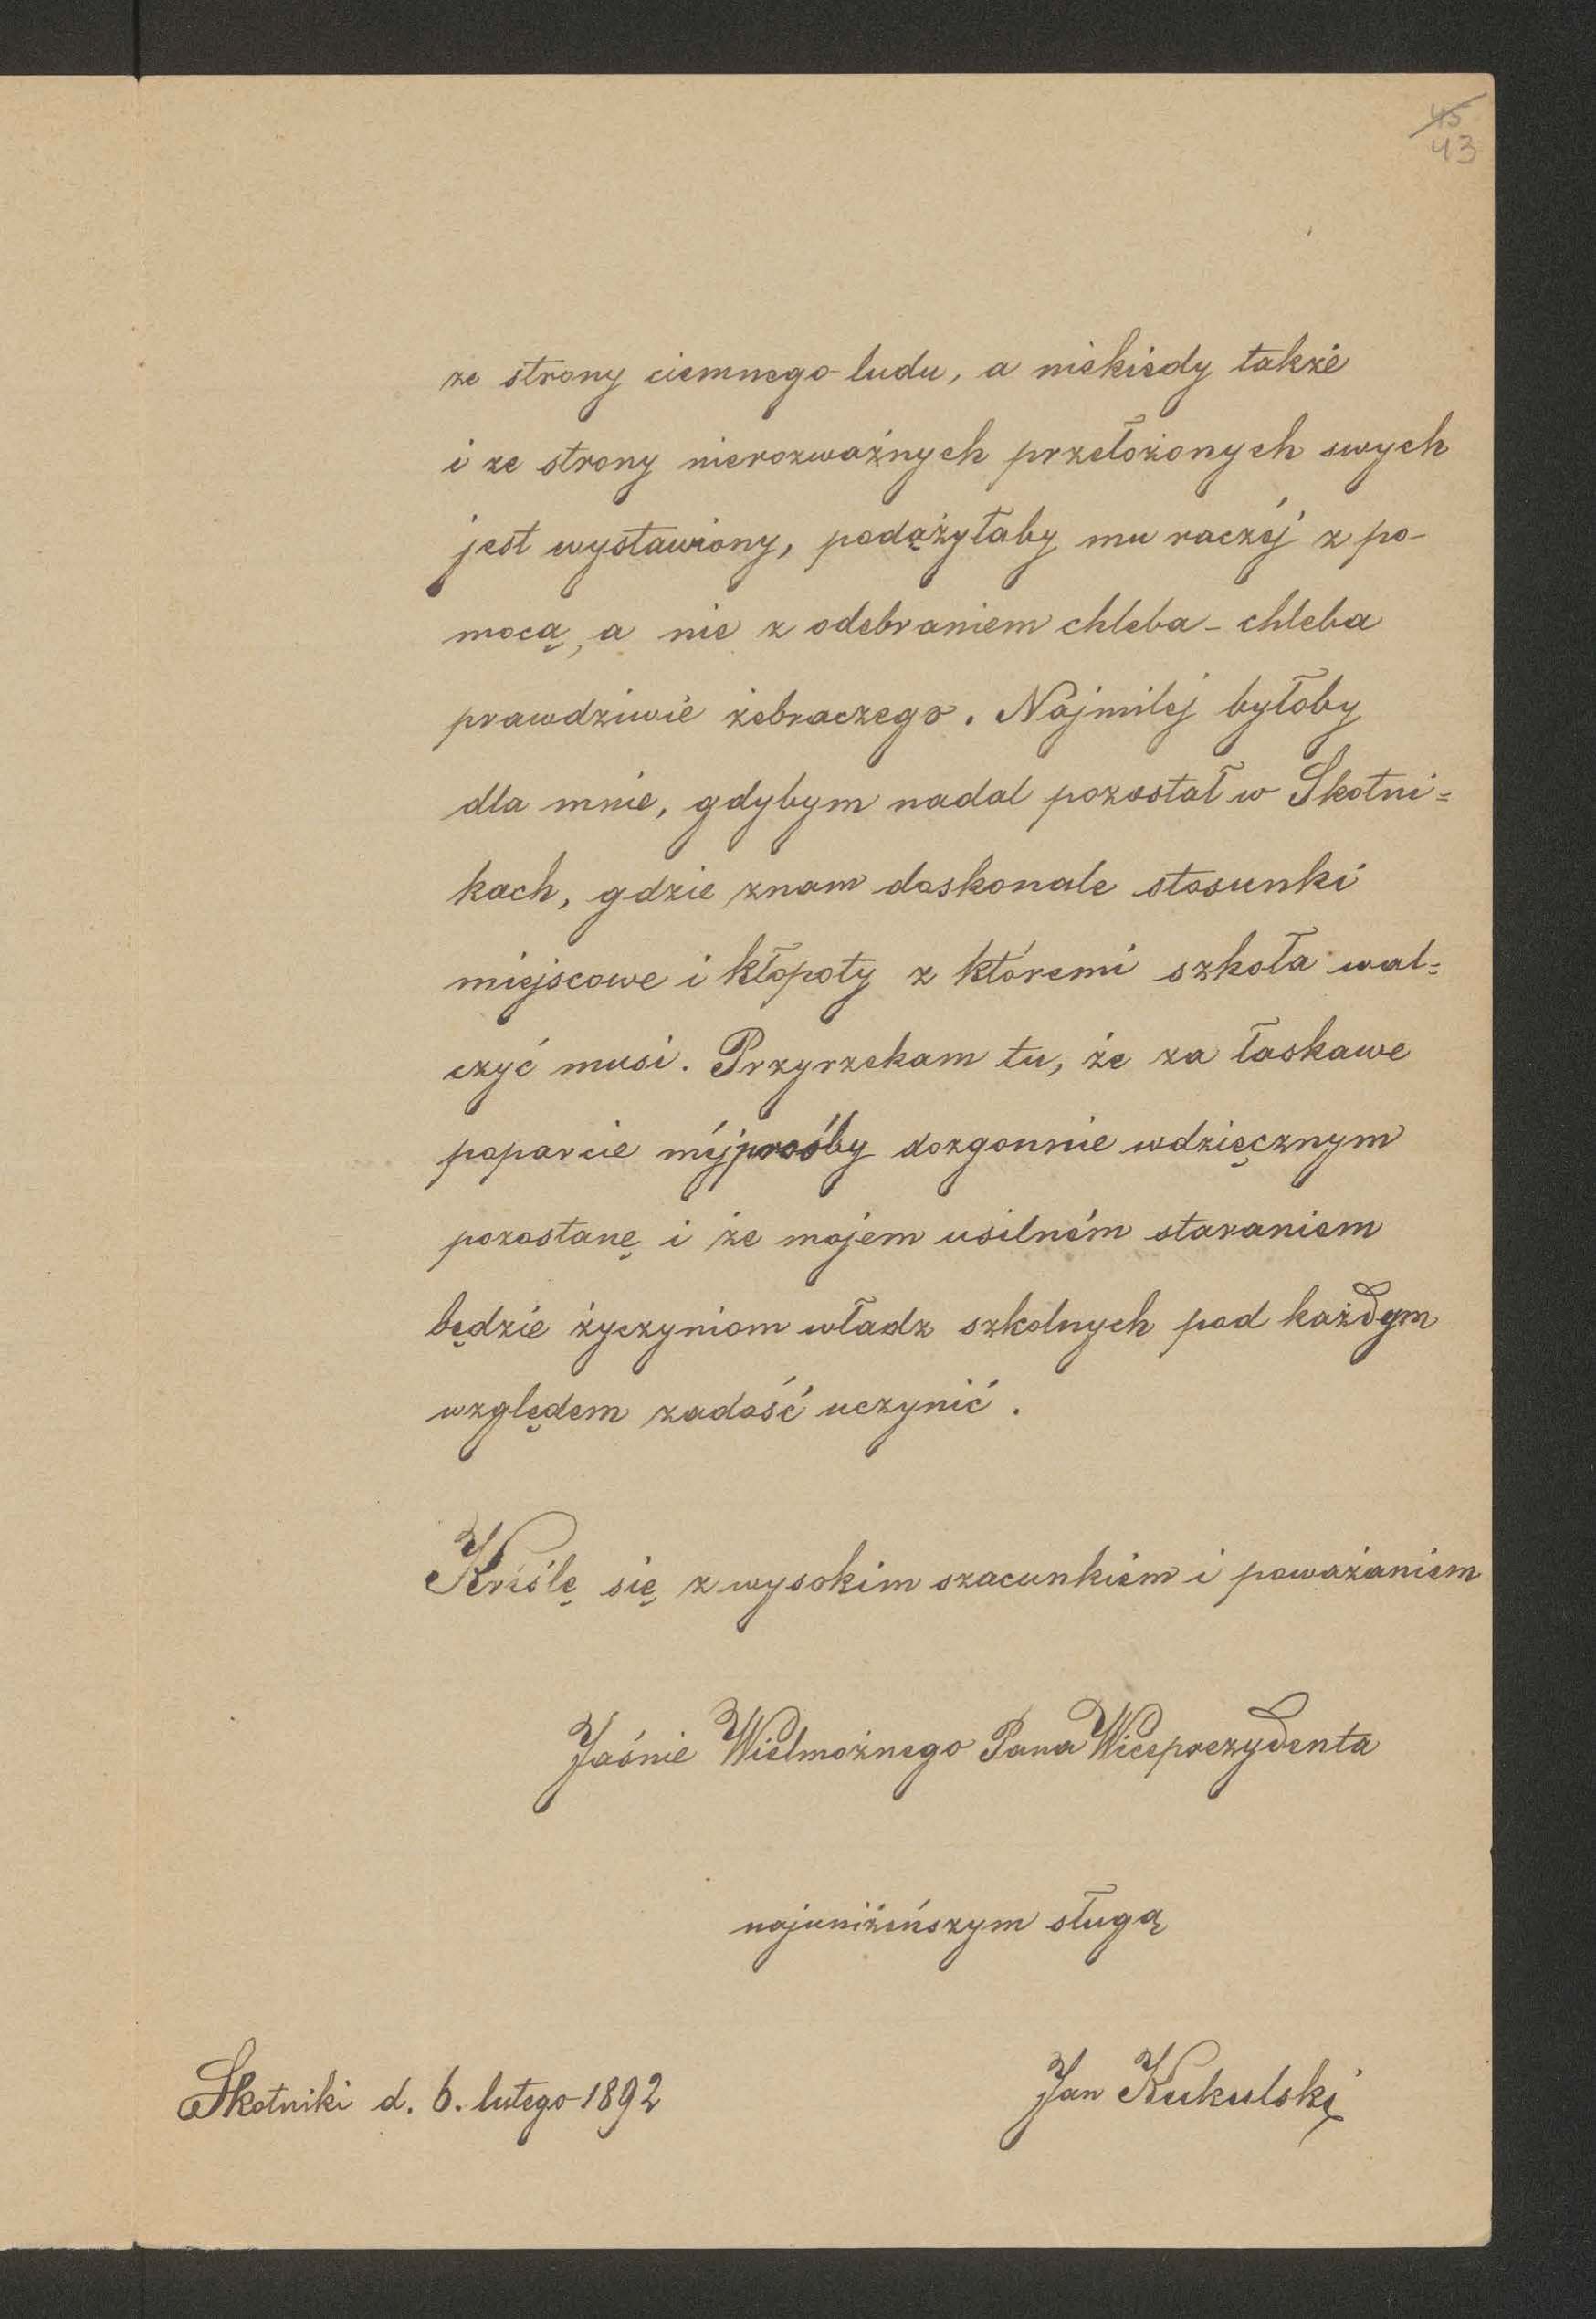 45
43
ze strony ciemnego ludu, a niekiedy także
i ze strony nierozważnych przełożonych swych
jest wystawiony, podążyłaby mu raczéj z po-
mocą, a nie z odebraniem chleba - chleba
prawdziwie żebraczego. Najmilej byłoby
dla mnie, gdybym nadal pozostał w Skotni=
kach, gdzie znam doskonale stosunki
miejscowe i kłopoty z któremi szkoła wal=
czyć musi. Przyrzekam tu, że za łaskawe
poparcie méj prośby dozgonnie wdzięcznym
pozostanę i że mojem usilném staraniem
będzie życzyniom władz szkolnych pod każdym
względem zadość uczynić.
Kréślę się z wysokim szacunkiem i poważaniem
Jaśnie Wielmożnego Pana Wiceprezydenta
najuniżeńszym sługą
Skotniki d. 6. lutego 1892
Jan Kukulski